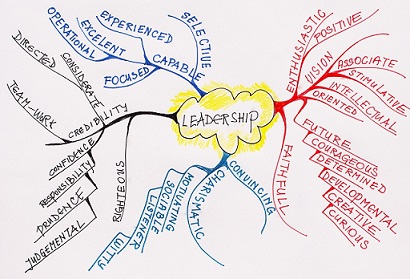 LEADERSHIP
SELECTIVE
CAPABLE
EXPERIENCED
EXCELENT
OPERATIONAL
FOCUSED
ENTHUSIASTIC
POSITIVE
VISION
ASSOCIATE
STIMULATIVE
INTELLECTUAL
ORIENTED
FUTURE
COURAGEOUS
DETERMINED
DEVELOPMENTAL
CREATIVE
CURIOUS
FAITHFULL
CONVINCING
CHARISMATIC
MOTIVATING
SOCIABLE
LISTENER
WITTY
RIGHTEOUS
CREDIBILITY
CONSIDERATE
DIRECTED
TEAM-WORK
CONFIDENCE
RESPONSIBILITY
PRUDENCE
JUDGEMENTAL